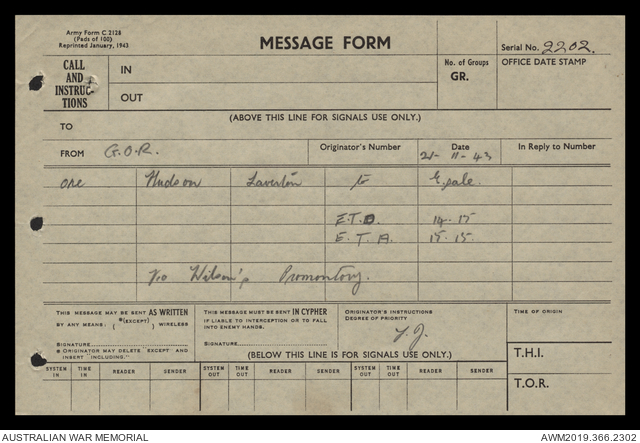 Army Form C 2128
(Pads of 100)
Reprinted January, 1943
MESSAGE FORM
Serial No. 2202.
CALL AND INSTRUC- TIONS
IN
OUT
No. of Groups
GR.
OFFICE DATE STAMP
(ABOVE THIS LINE FOR SIGNALS USE ONLY.)
TO
FROM G.O.R.
Originator's Number
Date
21-11-43
In Reply to Number
One Hudson Laverton to E. Sale.
E.T.D. 14.15
E.T.A. 15.15.
Via Wilson's Promontory.
THIS MESSAGE MAY BE SENT AS WRITTEN
BY ANY MEANS: { *(EXCEPT) } WIRELESS
SIGNATURE
* ORIGINATOR MAY DELETE "EXCEPT" AND INSERT "INCLUDING."
THIS MESSAGE MUST BE SENT IN CYPHER
IF LIABLE TO INTERCEPTION OR TO FALL INTO ENEMY HANDS.
SIGNATURE
ORIGINATOR'S INSTRUCTIONS
DEGREE OF PRIORITY
TIME OF ORIGIN
(BELOW THIS LINE IS FOR SIGNALS USE ONLY.)
T.H.I.
T.O.R.
SYSTEM IN TIME IN READER SENDER SYSTEM OUT TIME OUT READER SENDER SYSTEM OUT TIME OUT READER SENDER
AUSTRALIAN WAR MEMORIAL
AWM2019.366.2302